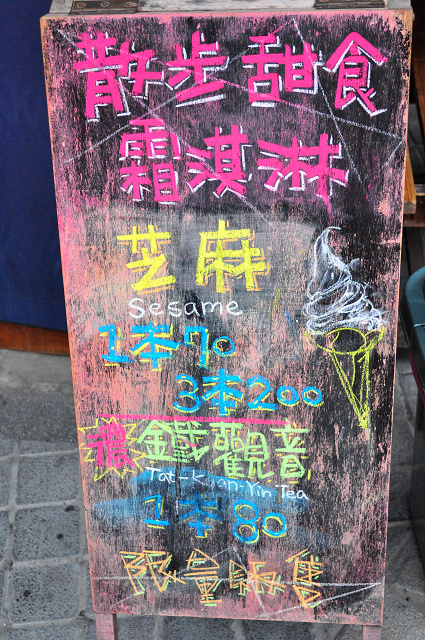 散步甜食
霜淇淋
芝麻
Sesame
1本70
3本200
濃 鐵觀音
Tat-Kuan-Yin Tea
1本80
限量銷售